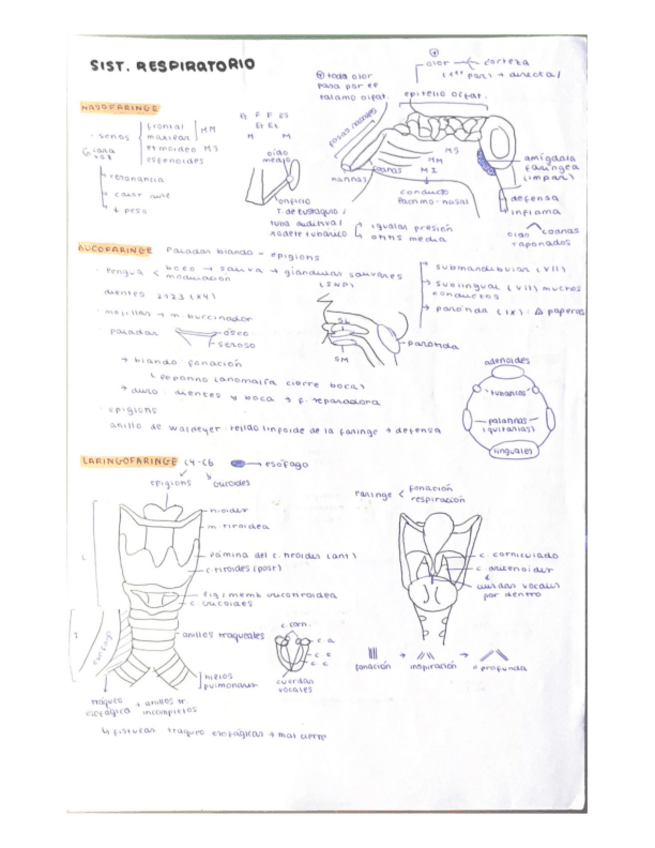 SIST. RESPIRATORIO
olor corteza
(1er par) → directa/
todo olor
pasa por el
tálamo olfat.
epitelio olfat.
NASOFARINGE
fosas nasales
· senos
frontal
maxilar
MM
etmoideo MS
esfenoides
resonancia
↓ peso
oído
medio
orificio
T. de Eustaquio /
tuba auditiva /
rodete tubárico
igualar presión
otitis media
MS
MM
MI
narinas
coanas
conducto
amígdala
faríngea
(impar)
defensa
inflama
coanas
taponados
BUCOFARINGE Paladar blando - epiglotis
· lengua
boca → saliva → glándulas salivares
modulación
(SNP)
submandibular (VII)
sublingual (VII) muchos
conductos
parótida (IX)
paperas
dientes 2123 (x4)
· mejillas → m. buccinador
paladar
óseo
seroso
SL
SM
parótida
→ blando: fonación
(anomalía cierre boca)
→ duro: dientes y boca → f. reparadora
· epiglotis
anillo de Waldeyer: tejido linfoide de la faringe → defensa
adenoides
"tubaricas"
palatinas
linguales
LARINGOFARINGE C4-C6 → esófago
epiglotis
cricoides
laringe
fonación
respiración
hioides
m. tiroidea
lámina del c. tiroides (ant)
c. tiroides (post)
lig / memb cricotiroidea
c cricoides
anillos traqueales
hilios
pulmonares
esófago
c. corn.
c. a
c. t
c. c
cuerdas
vocales
c. corniculado
c. aritenoides
cuerdas vocales
por dentro
fonación → inspiración → " profunda
traqueo
esofágico
anillos tr.
incompletos
↳ fístulas traqueo esofágicas → mal cierre